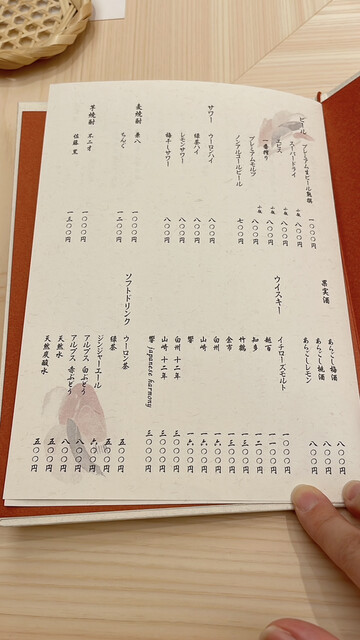 ビール
プレミアム生ビール 熟撰 一〇〇〇円
スーパードライ 小瓶 八〇〇円
エビス 小瓶 八〇〇円
一番搾り 小瓶 八〇〇円
プレミアムモルツ 小瓶 八〇〇円
ノンアルコールビール 七〇〇円
サワー ウーロンハイ 八〇〇円
緑茶ハイ 八〇〇円
レモンサワー 八〇〇円
梅干しサワー 八〇〇円
麦焼酎 兼八 一〇〇〇円
ちんぐ 一二〇〇円
芋焼酎 不二才 一〇〇〇円
佐藤 黒 一三〇〇円
果実酒 あらごし梅酒 八〇〇円
あらごし桃酒 八〇〇円
あらごしレモン 八〇〇円
ウイスキー イチローズモルト 一〇〇〇円
越百 一一〇〇円
知多 一二〇〇円
竹鶴 一三〇〇円
余市 一三〇〇円
白州 一六〇〇円
山崎 一六〇〇円
響 一六〇〇円
白州 十二年 三〇〇〇円
山崎 十二年 三〇〇〇円
響 japanese harmony 三〇〇〇円
ソフトドリンク ウーロン茶 五〇〇円
緑茶 五〇〇円
ジンジャーエール 六〇〇円
アルプス 白ぶどう 八〇〇円
アルプス 赤ぶどう 八〇〇円
天然水 五〇〇円
天然炭酸水 五〇〇円